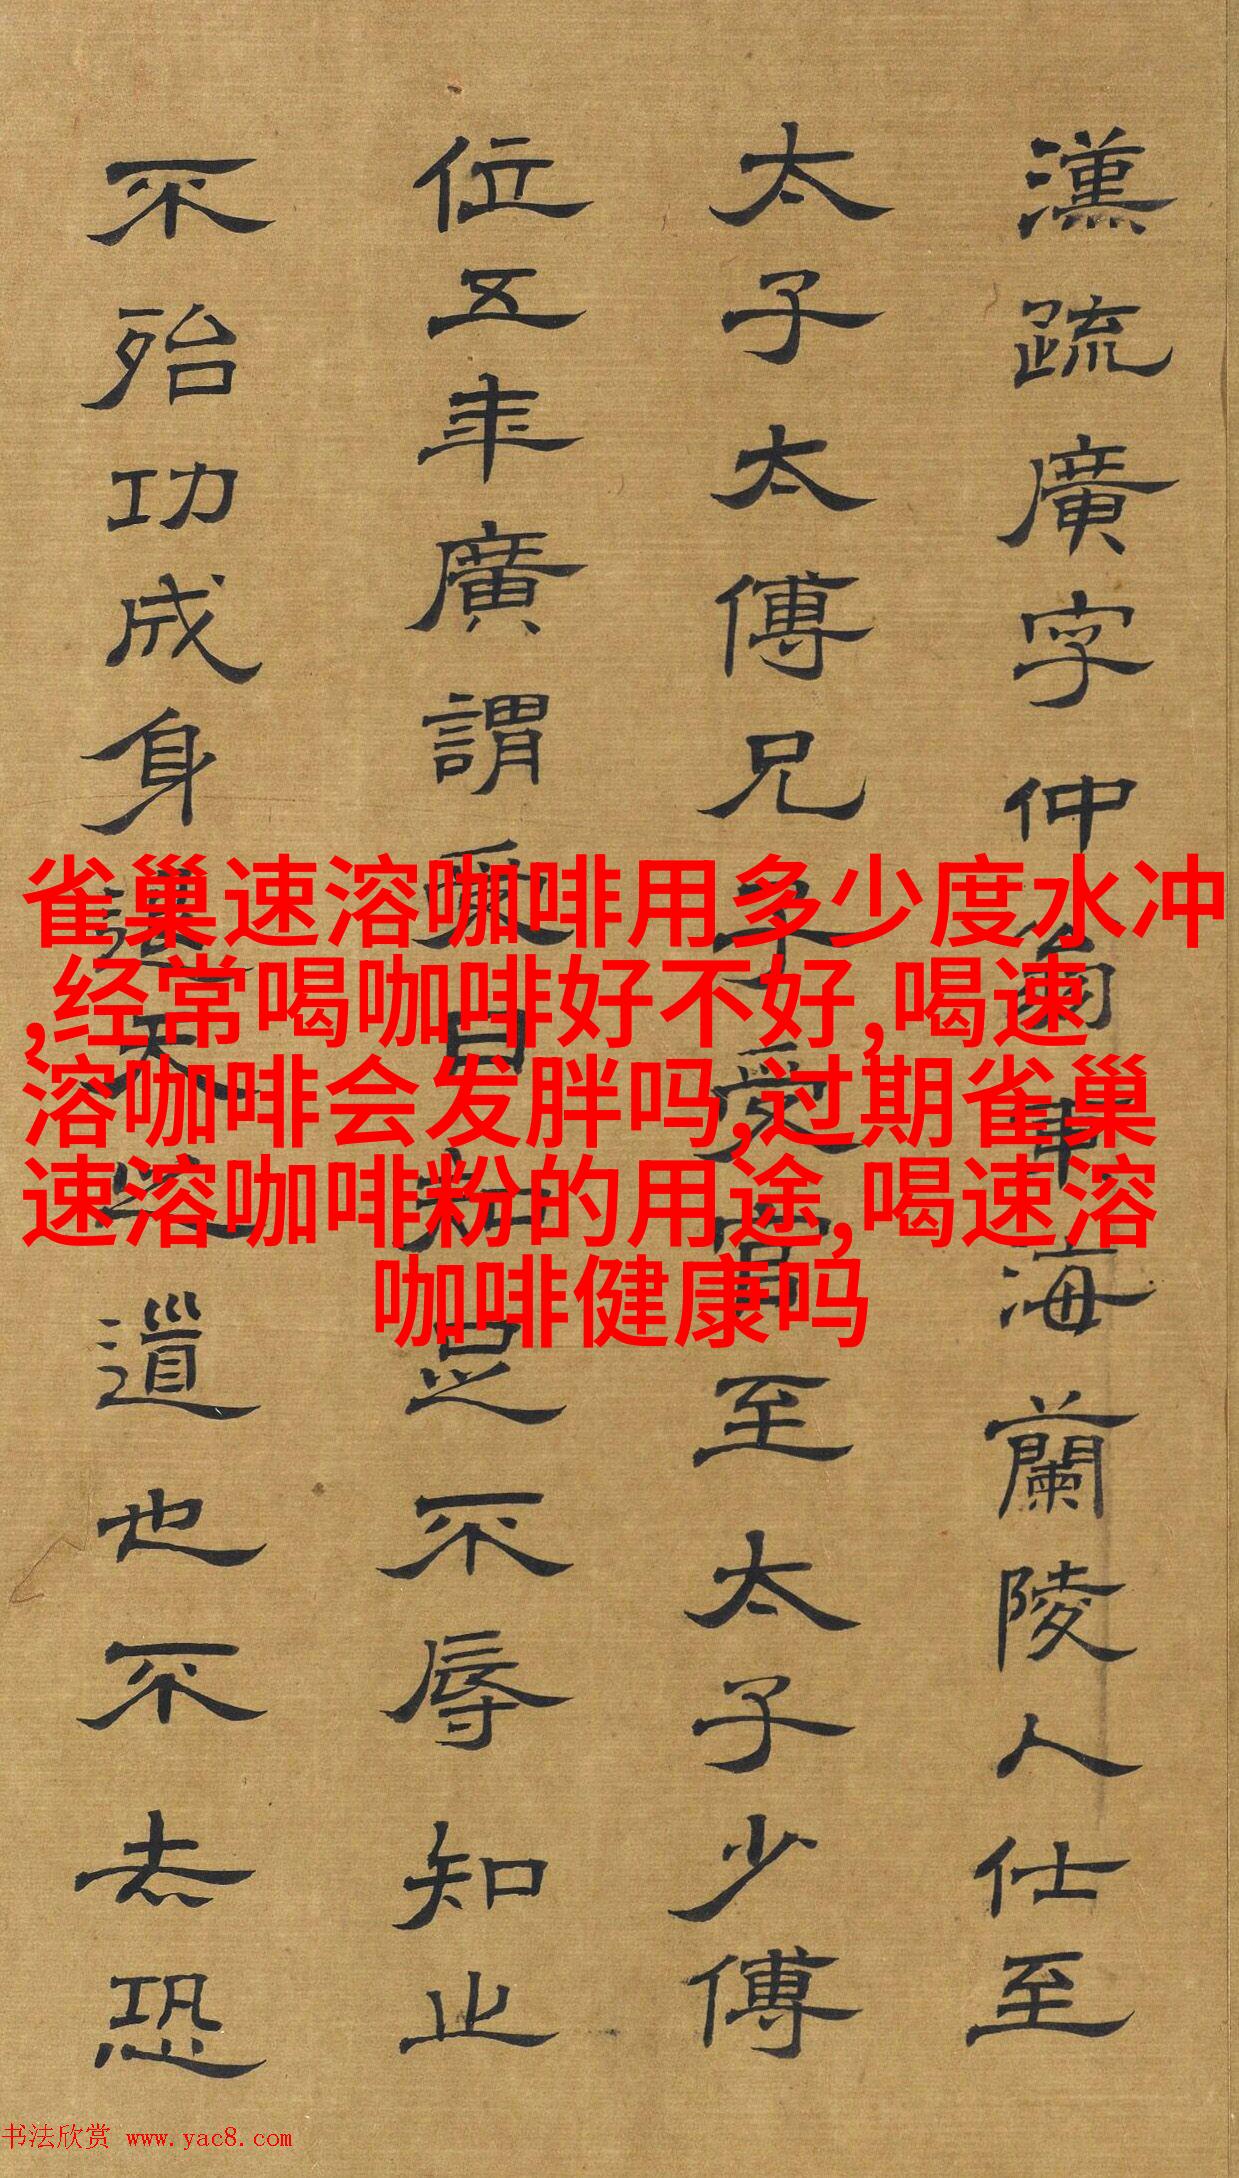 漢疏廣字仲翁東海蘭陵人仕至
太子太傅兄子受官至太子少傅
位五年廣謂受曰知足不辱知止
不殆功成身退天之道也不去恐
雀巢速溶咖啡用多少度水冲
,经常喝咖啡好不好,喝速
溶咖啡会发胖吗,过期雀巢
速溶咖啡粉的用途,喝速溶
咖啡健康吗
书法欣赏 www.yac8.com